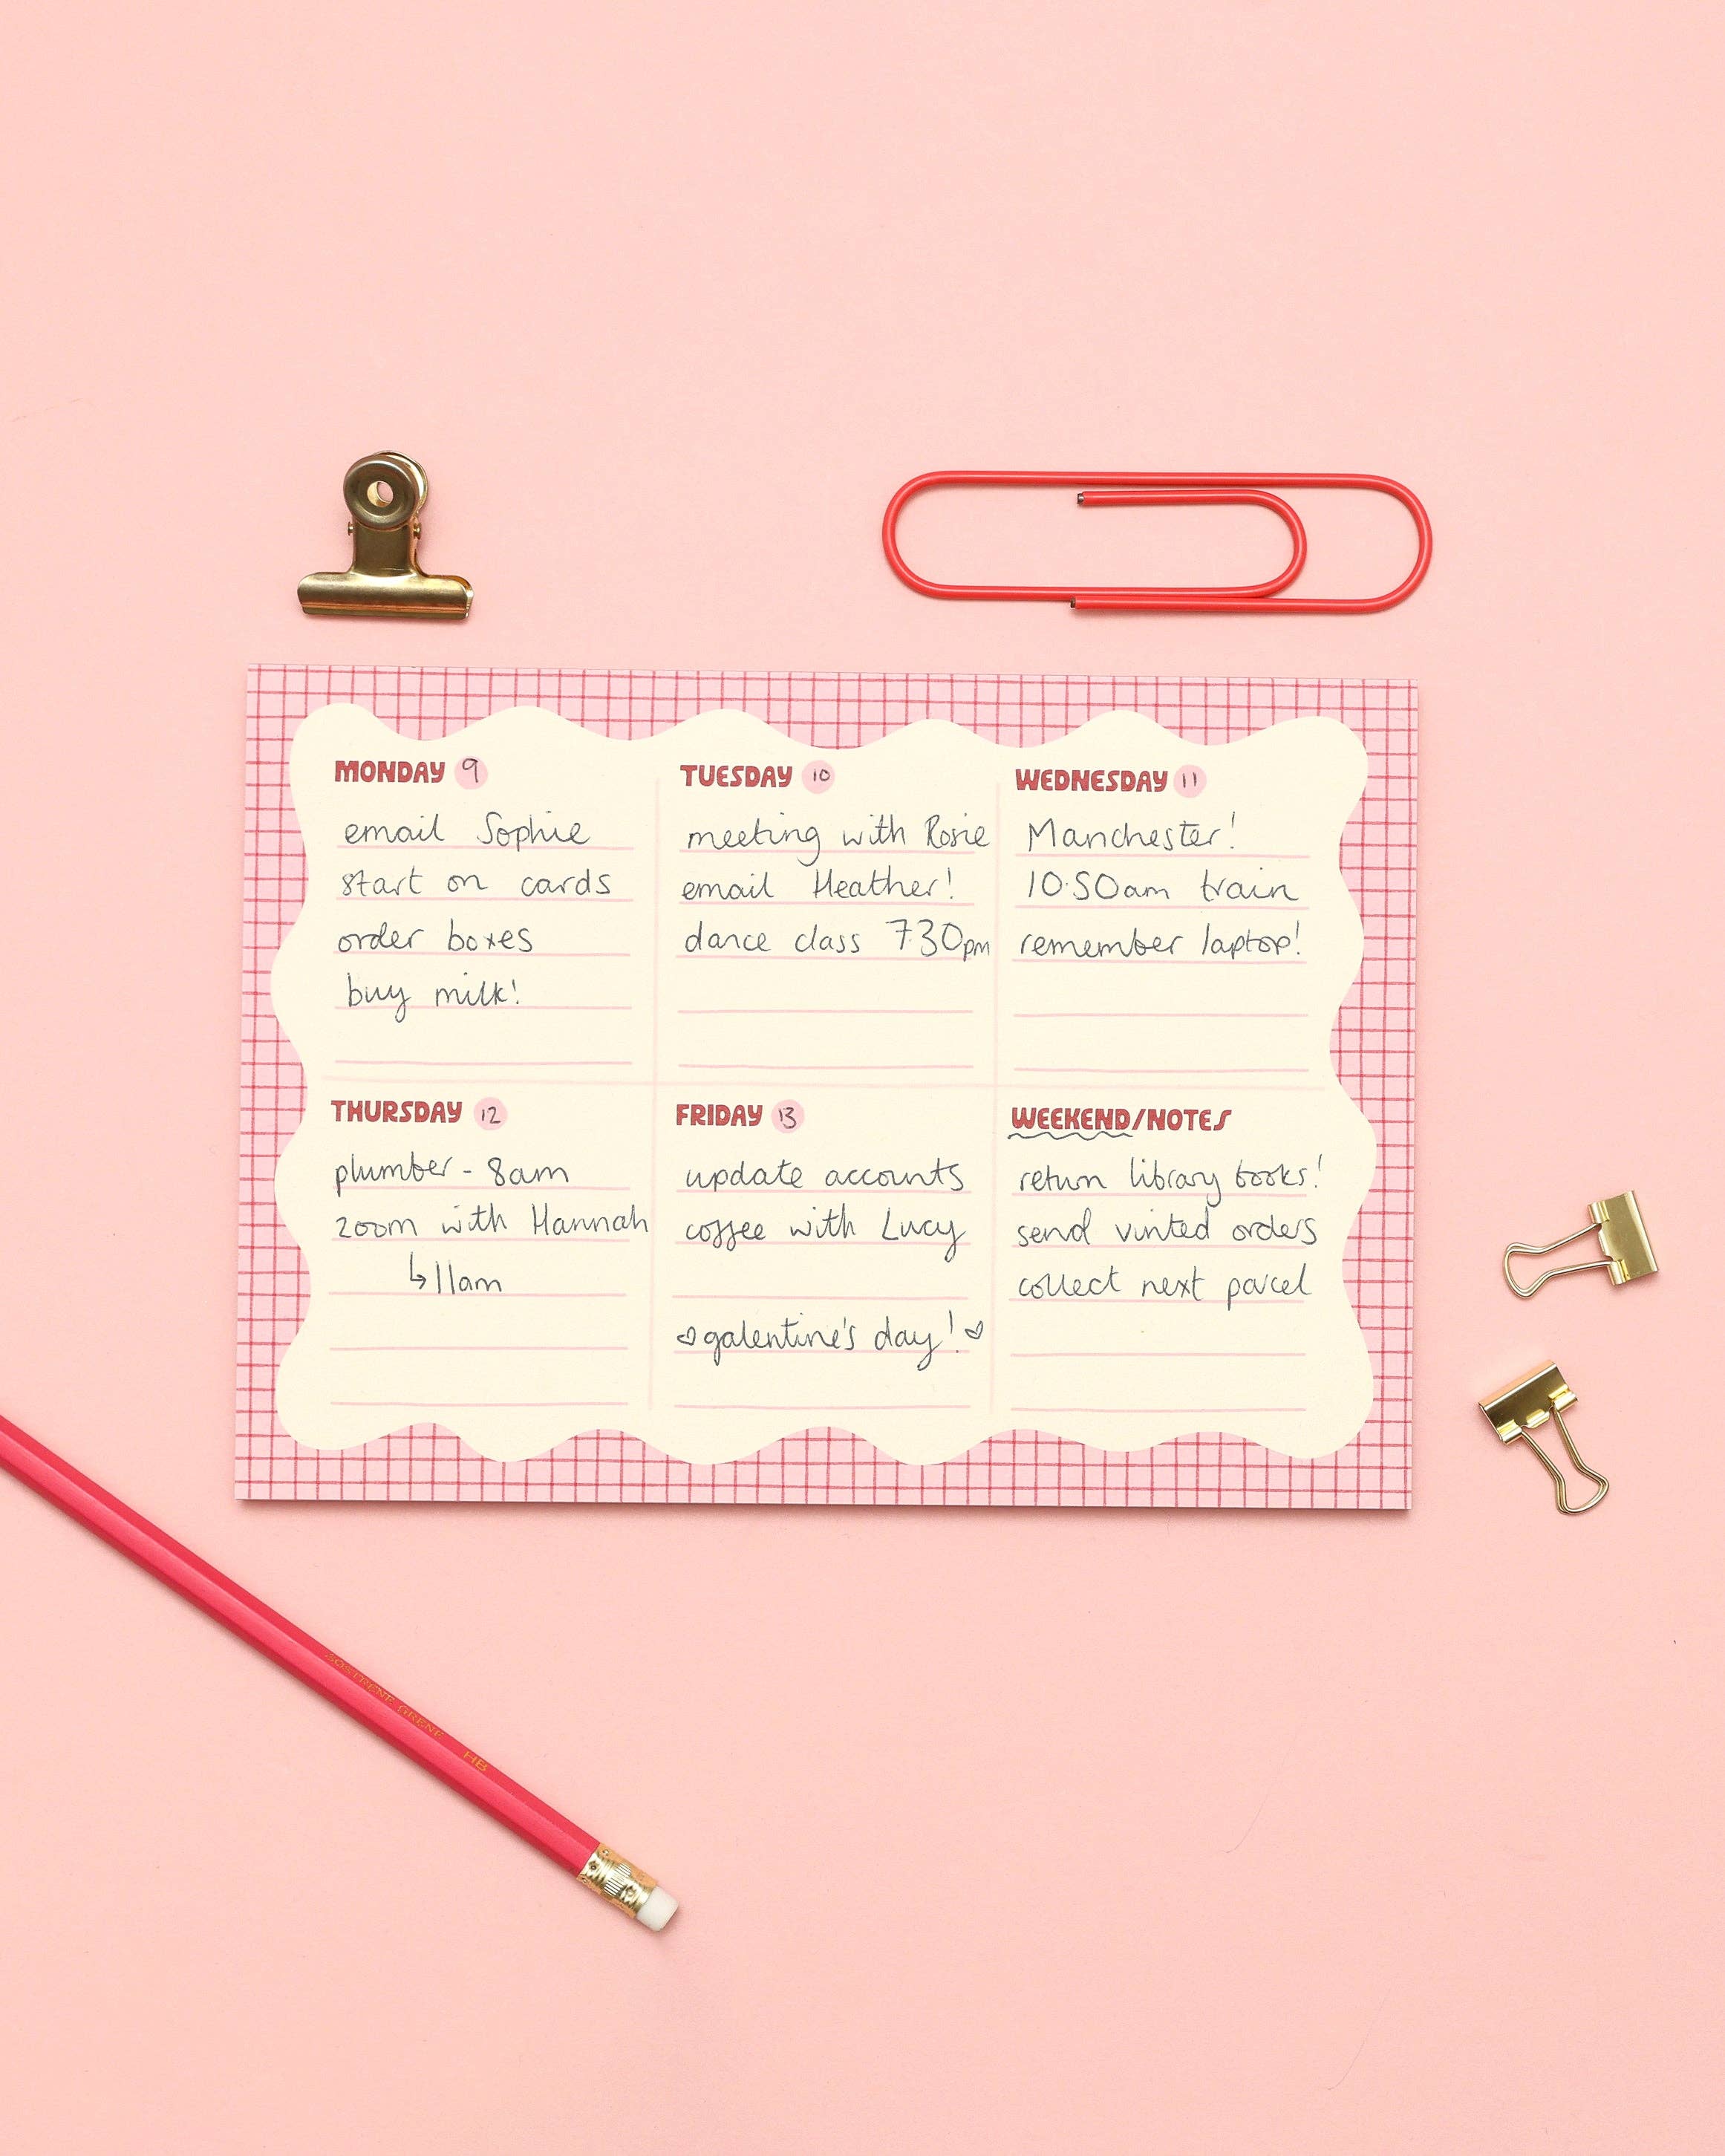 MONDAY 9
email Sophie
start on cards
order boxes
buy milk!
TUESDAY 10
meeting with Rosie
email Heather!
dance class 7.30pm
WEDNESDAY 11
Manchester!
10.50am train
remember laptop!
THURSDAY 12
plumber - 8am
zoom with Hannah
↳ 11am
FRIDAY 13
update accounts
coffee with Lucy
♡galentine's day!♡
WEEKEND/NOTES
return library books!
send vinted orders
collect next parcel
SOSTRENE GRENE HB